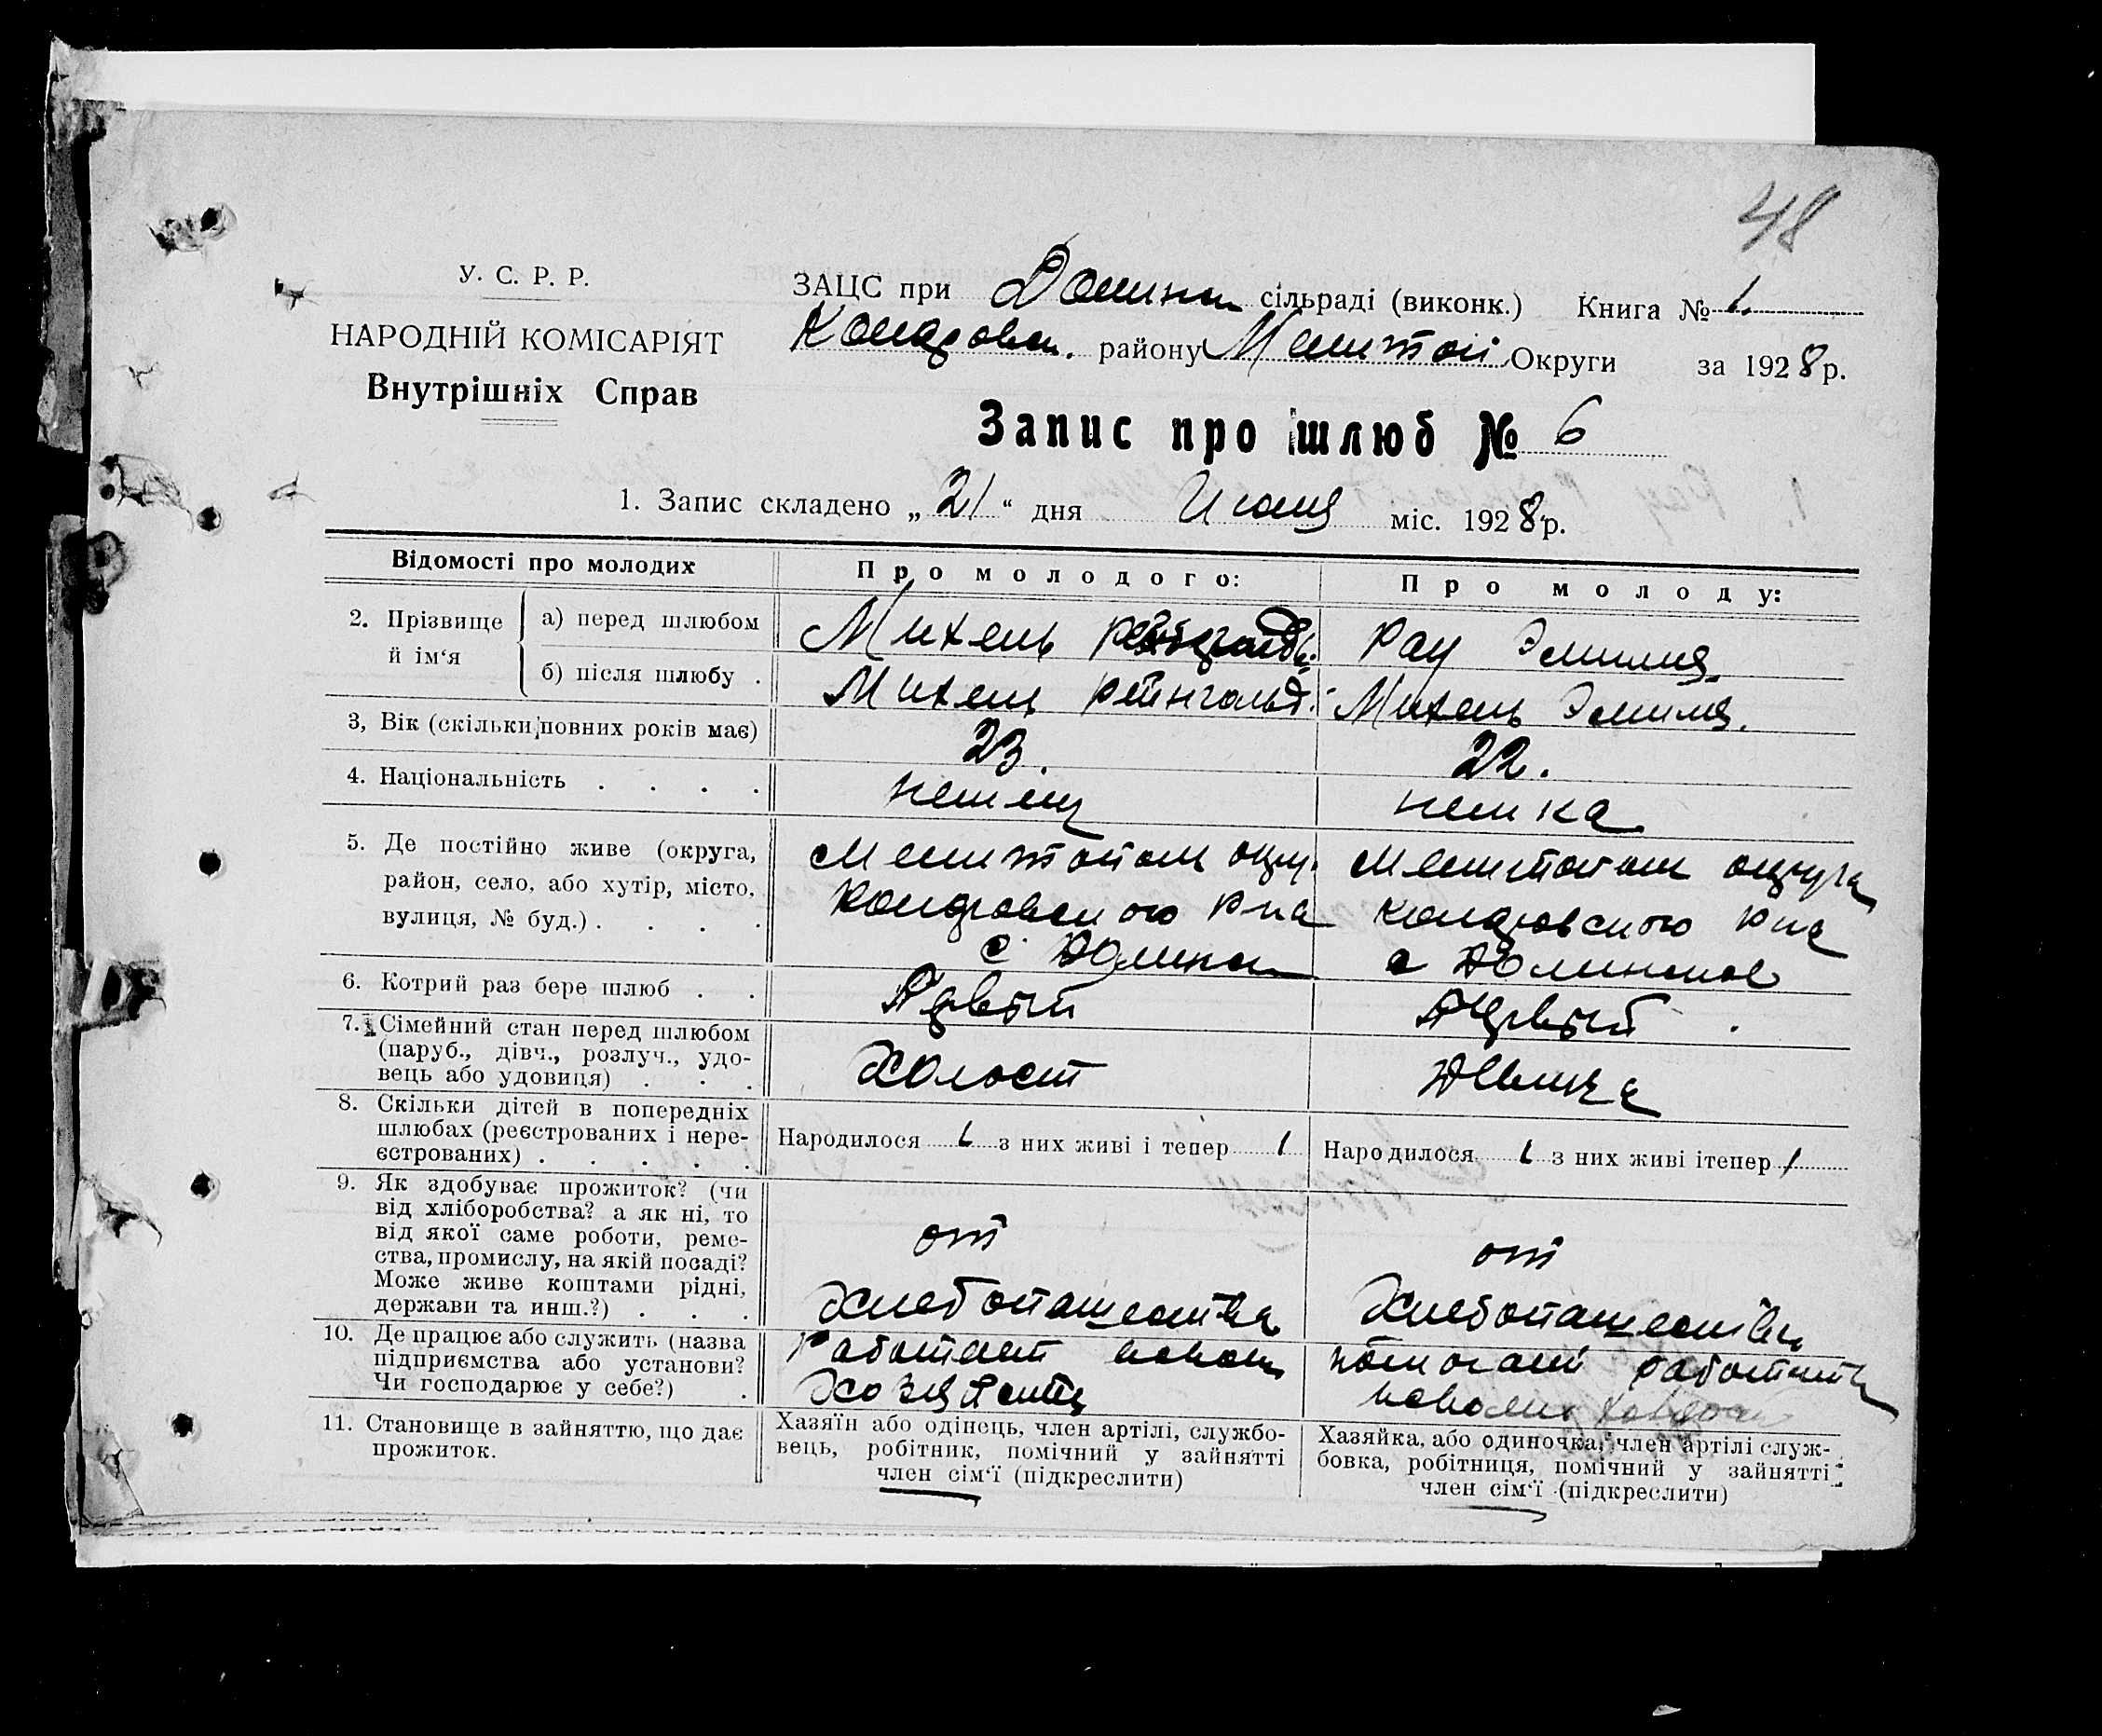 48
У. С. Р. Р.
НАРОДНІЙ КОМІСАРІЯТ
Внутрішніх Справ
ЗАЦС при Долинск сільраді (виконк.) Книга № 1.
районy Мелитой Округи за 1928 р.
Запис про шлюб № 6
1. Запис складено „21“ дня Июля міс. 1928 р.
Відомості про молодих Про молодого: Про молоду:
2. Прізвище й ім‘я
а) перед шлюбом Михель Рейнгольд. Рау Эмилия.
б) після шлюбу . Михель Рейнгольд. Михель Эмилия.
3, Вік (скільки повних років має) 23. 22.
4. Національність . . . . немец немка
5. Де постійно живе (округа,
район, село, або хутір, місто,
вулиця, № буд.) . . . .
Мелитопол окр.
р-на
с Долинск
Мелитопол округа
р-на
с Долинское
6. Котрий раз бере шлюб . . Первый Первый .
7. Сімейний стан перед шлюбом
(паруб., дівч., розлуч., удо-
вець або удовиця) . . .
Холост Девица
8. Скільки дітей в попередніх
шлюбах (реєстрованих і нере-
єстрованих) . . . . .
Народилося 1 з них живі і тепер 1
Народилося 1 з них живі ітепер 1
9. Як здобуває прожиток? (чи
від хліборобства? а як ні, то
від якої саме роботи, реме-
ства, промислу, на якій посаді?
Може живе коштами рідні,
держави та инш.?) . . .
от
Хлебопашества
от
Хлебопашества
10. Де працює або служить (назва
підприємства або установи?
Чи господарює у себе?) .
Работает
работать
11. Становище в зайняттю, що дає
прожиток.
Хазяїн або одінець, член артілі, службо-
вець, робітник, помічний у зайнятті
член сім‘ї (підкреслити)
Хазяйка, або одиночка, член артілі служ-
бовка, робітниця, помічний у зайнятті
член сім‘ї (підкреслити)